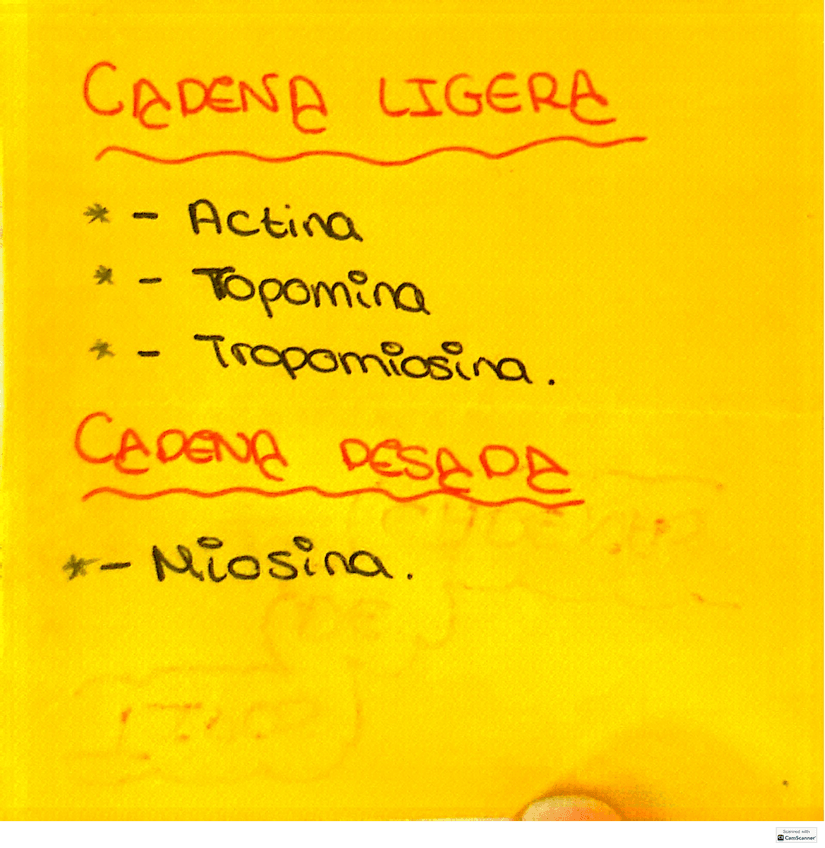 CADENA LIGERA
* - Actina
* - Topomina
* - Tropomiosina.
CADENA PESADA
* - Miosina.
DE
Scanned with
CamScanner